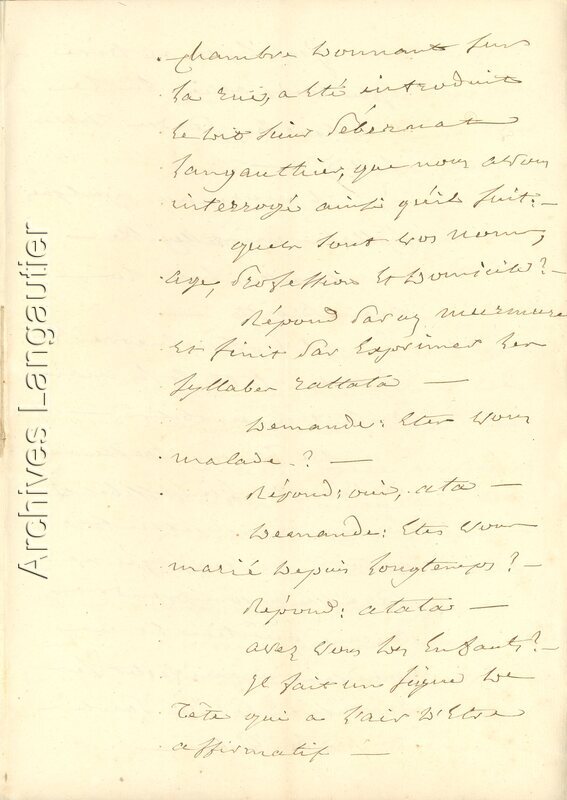 chambre donnant sur
la rue, a été introduit
le dit sieur Débernat
Langauthier, que nous avons
interrogé ainsi qu'il suit. —
quels sont vos noms,
age, profession et domicile ? —
Répond par un murmure
et finit par exprimer les
syllabes rattata —
Demande : Etes vous
malade ? —
Répond : oui, ata —
Demande : Etes vous
marié depuis longtemps ? —
Répond : atata —
avez vous des Enfants ? —
Il fait un signe de
Tête qui a l'air d'Etre
affirmatif —
Archives Langautier